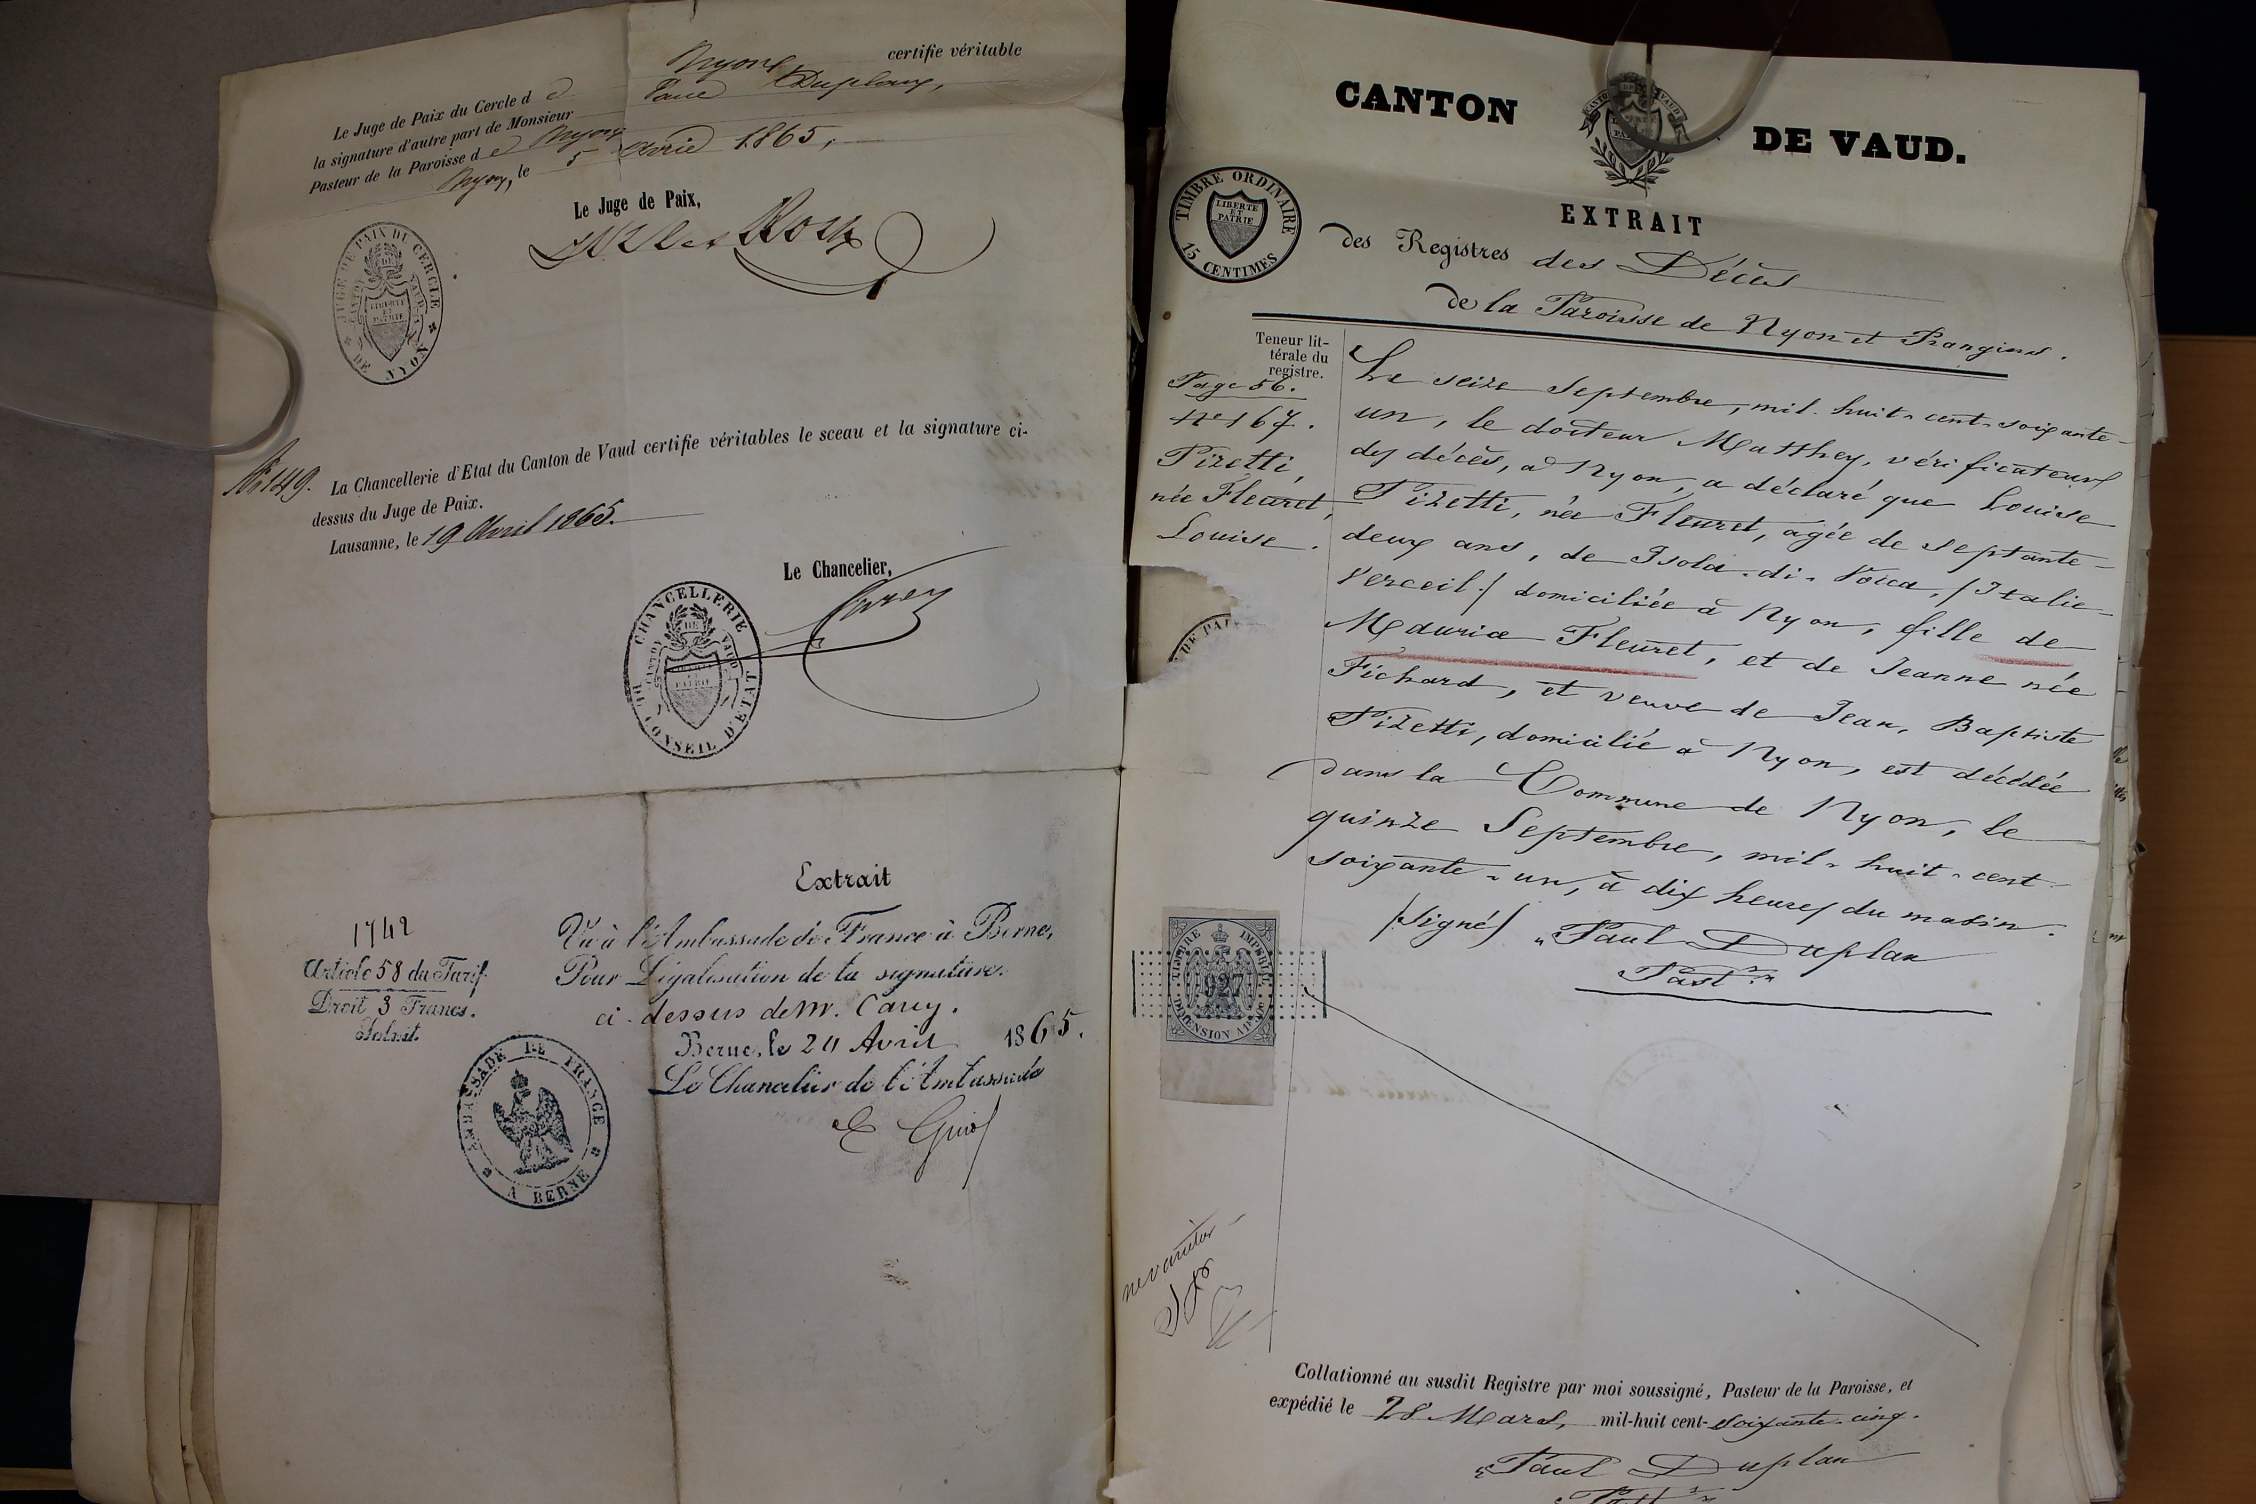 Le Juge de Paix du Cercle d e Nyon certifie véritable
la signature d'autre part de Monsieur Paul Duplan,
Pasteur de la Paroisse d e Nyon
Nyon, le 5 Avril 1865,
Le Juge de Paix,
Roux
JUGE DE PAIX DU CERCLE
DE NYON
CANTON DE VAUD
LIBERTÉ
ET
PATRIE
No 149. La Chancellerie d'Etat du Canton de Vaud certifie véritables le sceau et la signature ci-
dessus du Juge de Paix.
Lausanne, le 19 Avril 1865.
Le Chancelier,
Carey
CHANCELLERIE
DU CONSEIL D'ETAT
CANTON DE VAUD
Extrait
1742
Article 58 du Tarif
Droit 3 Francs.
Vu à l'Ambassade de France à Berne,
Pour Légalisation de la signature
ci-dessus de M. Carey.
Berne, le 20 Avril 1865.
Le Chancelier de l'Ambassade
AMBASSADE DE FRANCE
A BERNE
CANTON DE VAUD.
CANTON DE VAUD
TIMBRE ORDINAIRE
LIBERTÉ
ET
PATRIE
15 CENTIMES
EXTRAIT
des Registres des Décès
de la Paroisse de Nyon et Prangins.
Teneur lit-
térale du
registre.
Page 56.
No 167.
Pizetti,
née Fleuret,
Louise.
Le seize Septembre, mil-huit-cent-soixante-
un, le docteur Matthey, vérificateur
des décès, à Nyon, a déclaré que Louise
Pizetti, née Fleuret, agée de septante-
deux ans, de Isola-di-Vocca, /Italie
Verceil/ domiciliée à Nyon, fille de
Maurice Fleuret, et de Jeanne née
Pichard, et veuve de Jean, Baptiste
Pizetti, domicilié à Nyon, est décédée
dans la Commune de Nyon, le
quinze Septembre, mil-huit-cent-
soixante-un, à dix heures du matin.
/Signé/ "Paul Duplan
Past.r"
DE PAI
TIMBRE IMPERIAL
927
DIMENSION
ne varietur
Collationné au susdit Registre par moi soussigné, Pasteur de la Paroisse, et
expédié le 28 Mars, mil-huit cent-soixante-cinq.
Paul Duplan